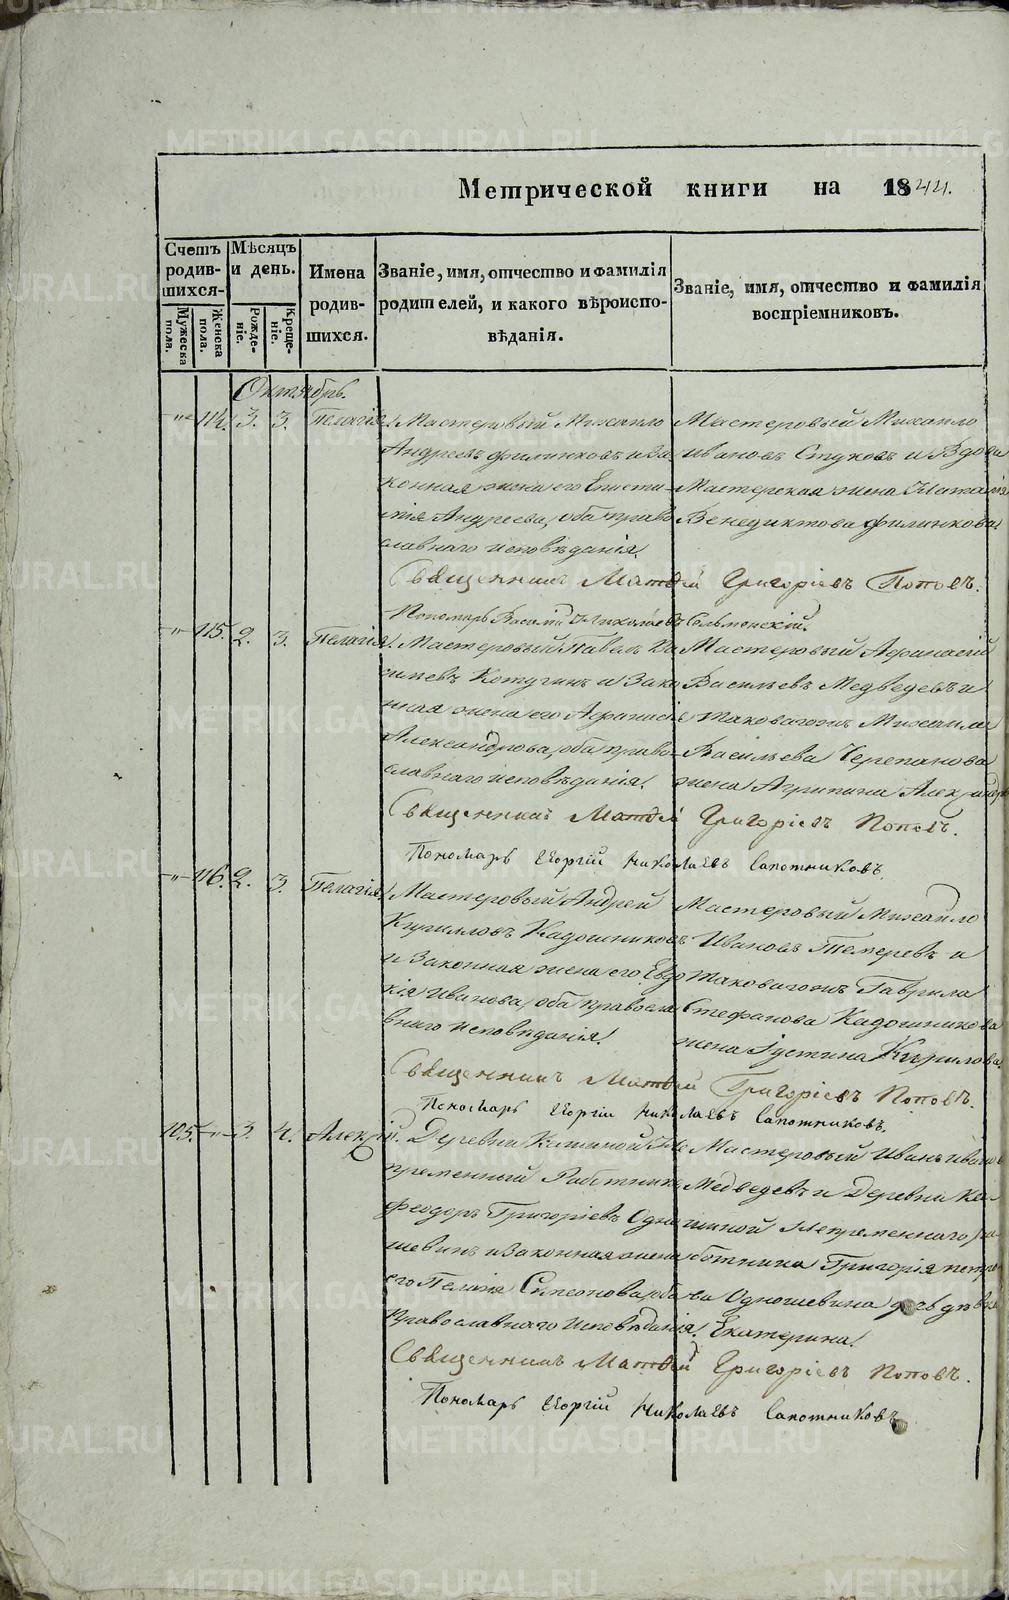 Метрической книги на 1844.
Счетъ родившихся.
Мѣсяцъ и день.
Имена родившихся.
Званіе, имя, отчество и фамилія родителей, и какого вѣроисповѣданія.
Званіе, имя, отчество и фамилія воспріемниковъ.
Мужеска пола.
Женска пола.
Рожденіе.
Крещеніе.
Октябрь.
-"- 114. 3. 3. Пелагія
Мастеровый Михаило
Андреевъ Филинковъ и За
конная жена его Еписти-
мія Андреева, оба право
славнаго исповѣданія.
Мастеровый Михаило
Ивановъ Стуковъ и Вдова
Мастерская жена Наталія
Венедиктова Филинкова.
Священникъ Матѳей Григоріевъ Поповъ.
Пономарь Василій Николаевъ
-"- 115. 2. 3. Пелагія
Мастеровый Павелъ Ва
сильевъ Котугинъ и Зако
нная жена его Афанасія
Александрова, оба право-
славнаго исповѣданія.
Мастеровый Афанасій
Васильевъ Медведевъ и
таковагожъ Михаила
Васильева Черепанова
жена Агрипина
Священникъ Матѳей Григоріевъ Поповъ.
Пономарь Георгій Николаевъ Сапожниковъ.
-"- 116. 2. 3. Пелагія
Мастеровый Андрей
Кирилловъ Кадошниковъ
и Законная жена его Евдо
кія Иванова, оба правосла
внаго исповѣданія.
Мастеровый Михаило
Ивановъ Темеревъ и
таковагожъ Гаврила
Стефанова Кадошникова
жена Іустина Кирилова.
Священникъ Матѳей Григоріевъ Поповъ.
Пономарь Георгій Николаевъ Сапожниковъ.
105. -"- 3. 4. Алексѣй.
Деревни Не
пременный Работникъ
Феодоръ Григоріевъ Одно
шевинъ и Законная жена
его Симеонова, оба
Православнаго Исповѣданія.
Мастеровый Иванъ Ивановъ
Медведевъ и Деревни
Непременнаго ра-
ботника Григорія Петро
ва Одношевина дочь дѣвка
Екатерина.
Священникъ Матѳей Григоріевъ Поповъ.
Пономарь Георгій Николаевъ Сапожниковъ
METRIKI.GASO-URAL.RU